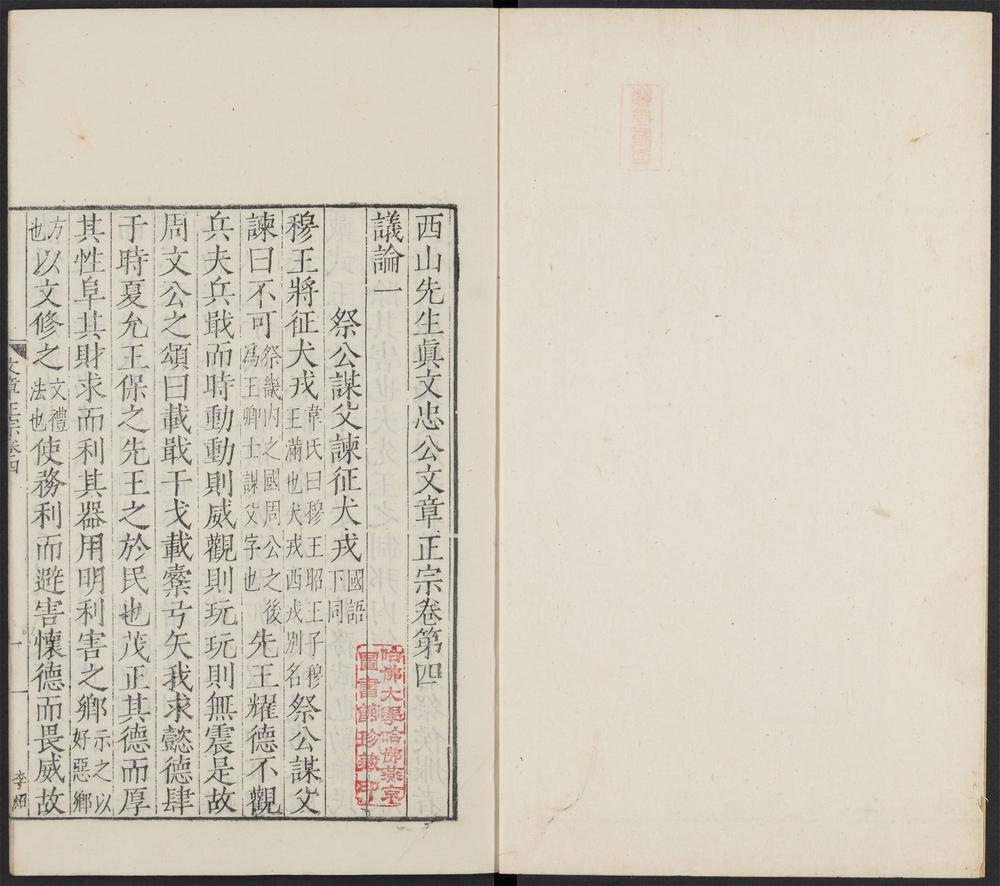 西山先生眞文忠公文章正宗卷第四
議論一
祭公謀父諫征犬戎國語下同
穆王將征犬戎韋氏曰穆王昭王子穆王滿也犬戎西戎別名祭公謀父
諫曰不可祭畿内之國周公之後爲王卿士謀父字也先王耀德不觀
兵夫兵戢而時動動則威觀則玩玩則無震是故
周文公之頌曰載戢干戈載櫜弓矢我求懿德肆
于時夏允王保之先王之於民也茂正其德而厚
其性阜其財求而利其器用明利害之鄉示之以好惡鄉
方也以文修之文禮法也使務利而避害懷德而畏威故
文章正宗卷四
一
李紹
哈佛大學哈佛燕京
圖書館珍藏印